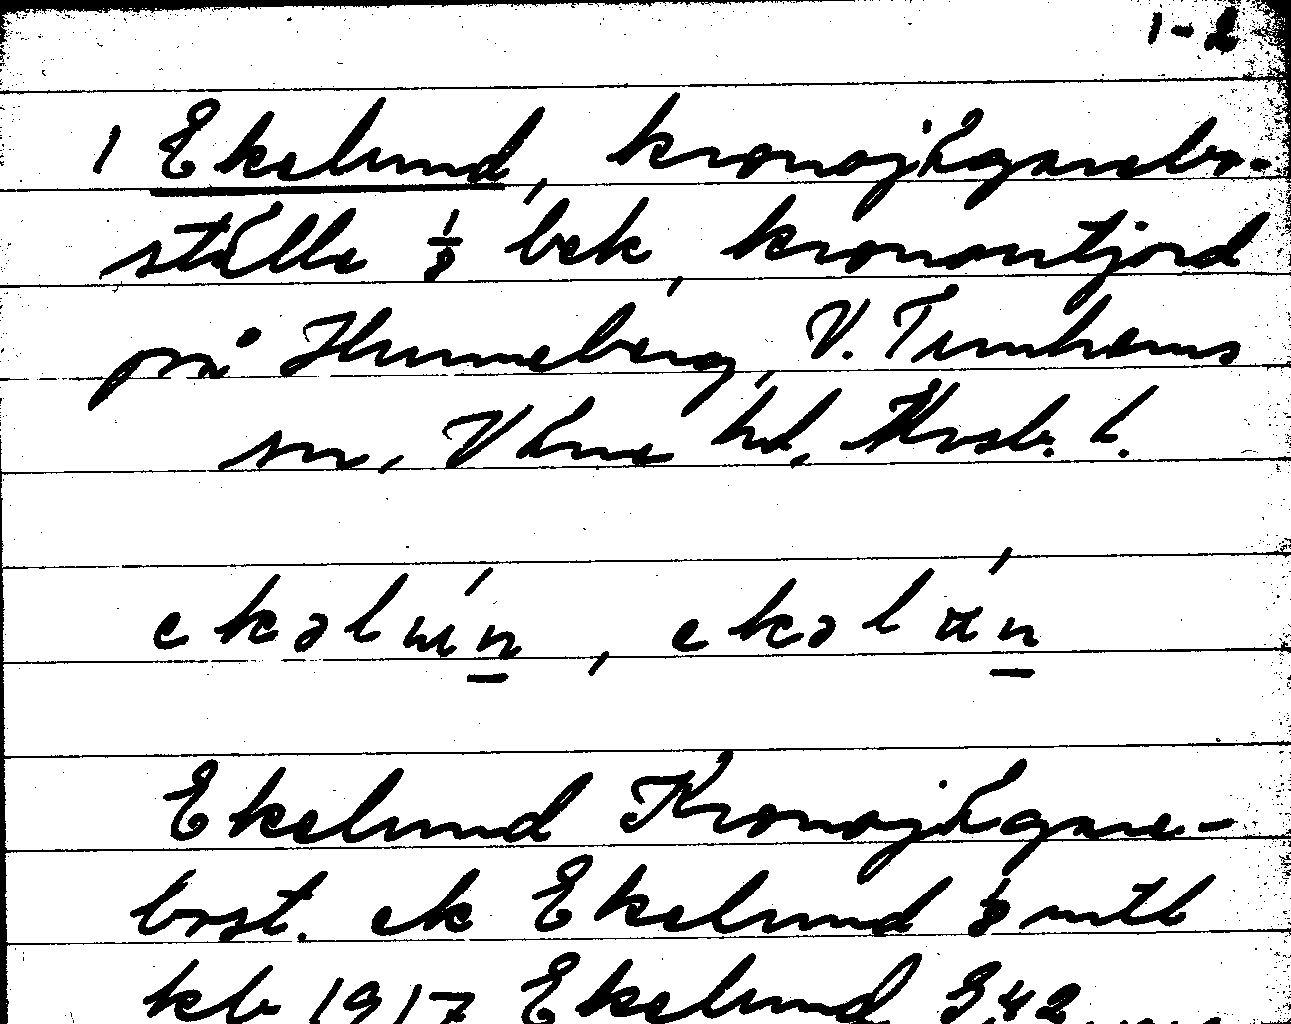 1-2
1 Ekelund, kronojägarebo-
ställe ⅛ bek, kronoutjord
på Hunneberg, V. Tunhems
sn, Väne hd, Älvsb. l.
ekəlun, ekəlɯn
Ekelund Kronojägare-
bost. ek Ekelund ⅛ mtl
kb 1917 Ekelund G42